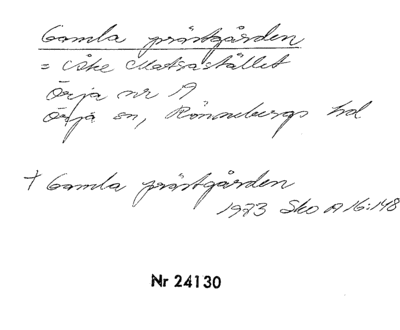 Gamla prästgården
= Åke Matsastället
Örja nr 9
Örja sn, Rönnebergs hd
† Gamla prästgården
1973 Sko A 16:148
Nr 24130